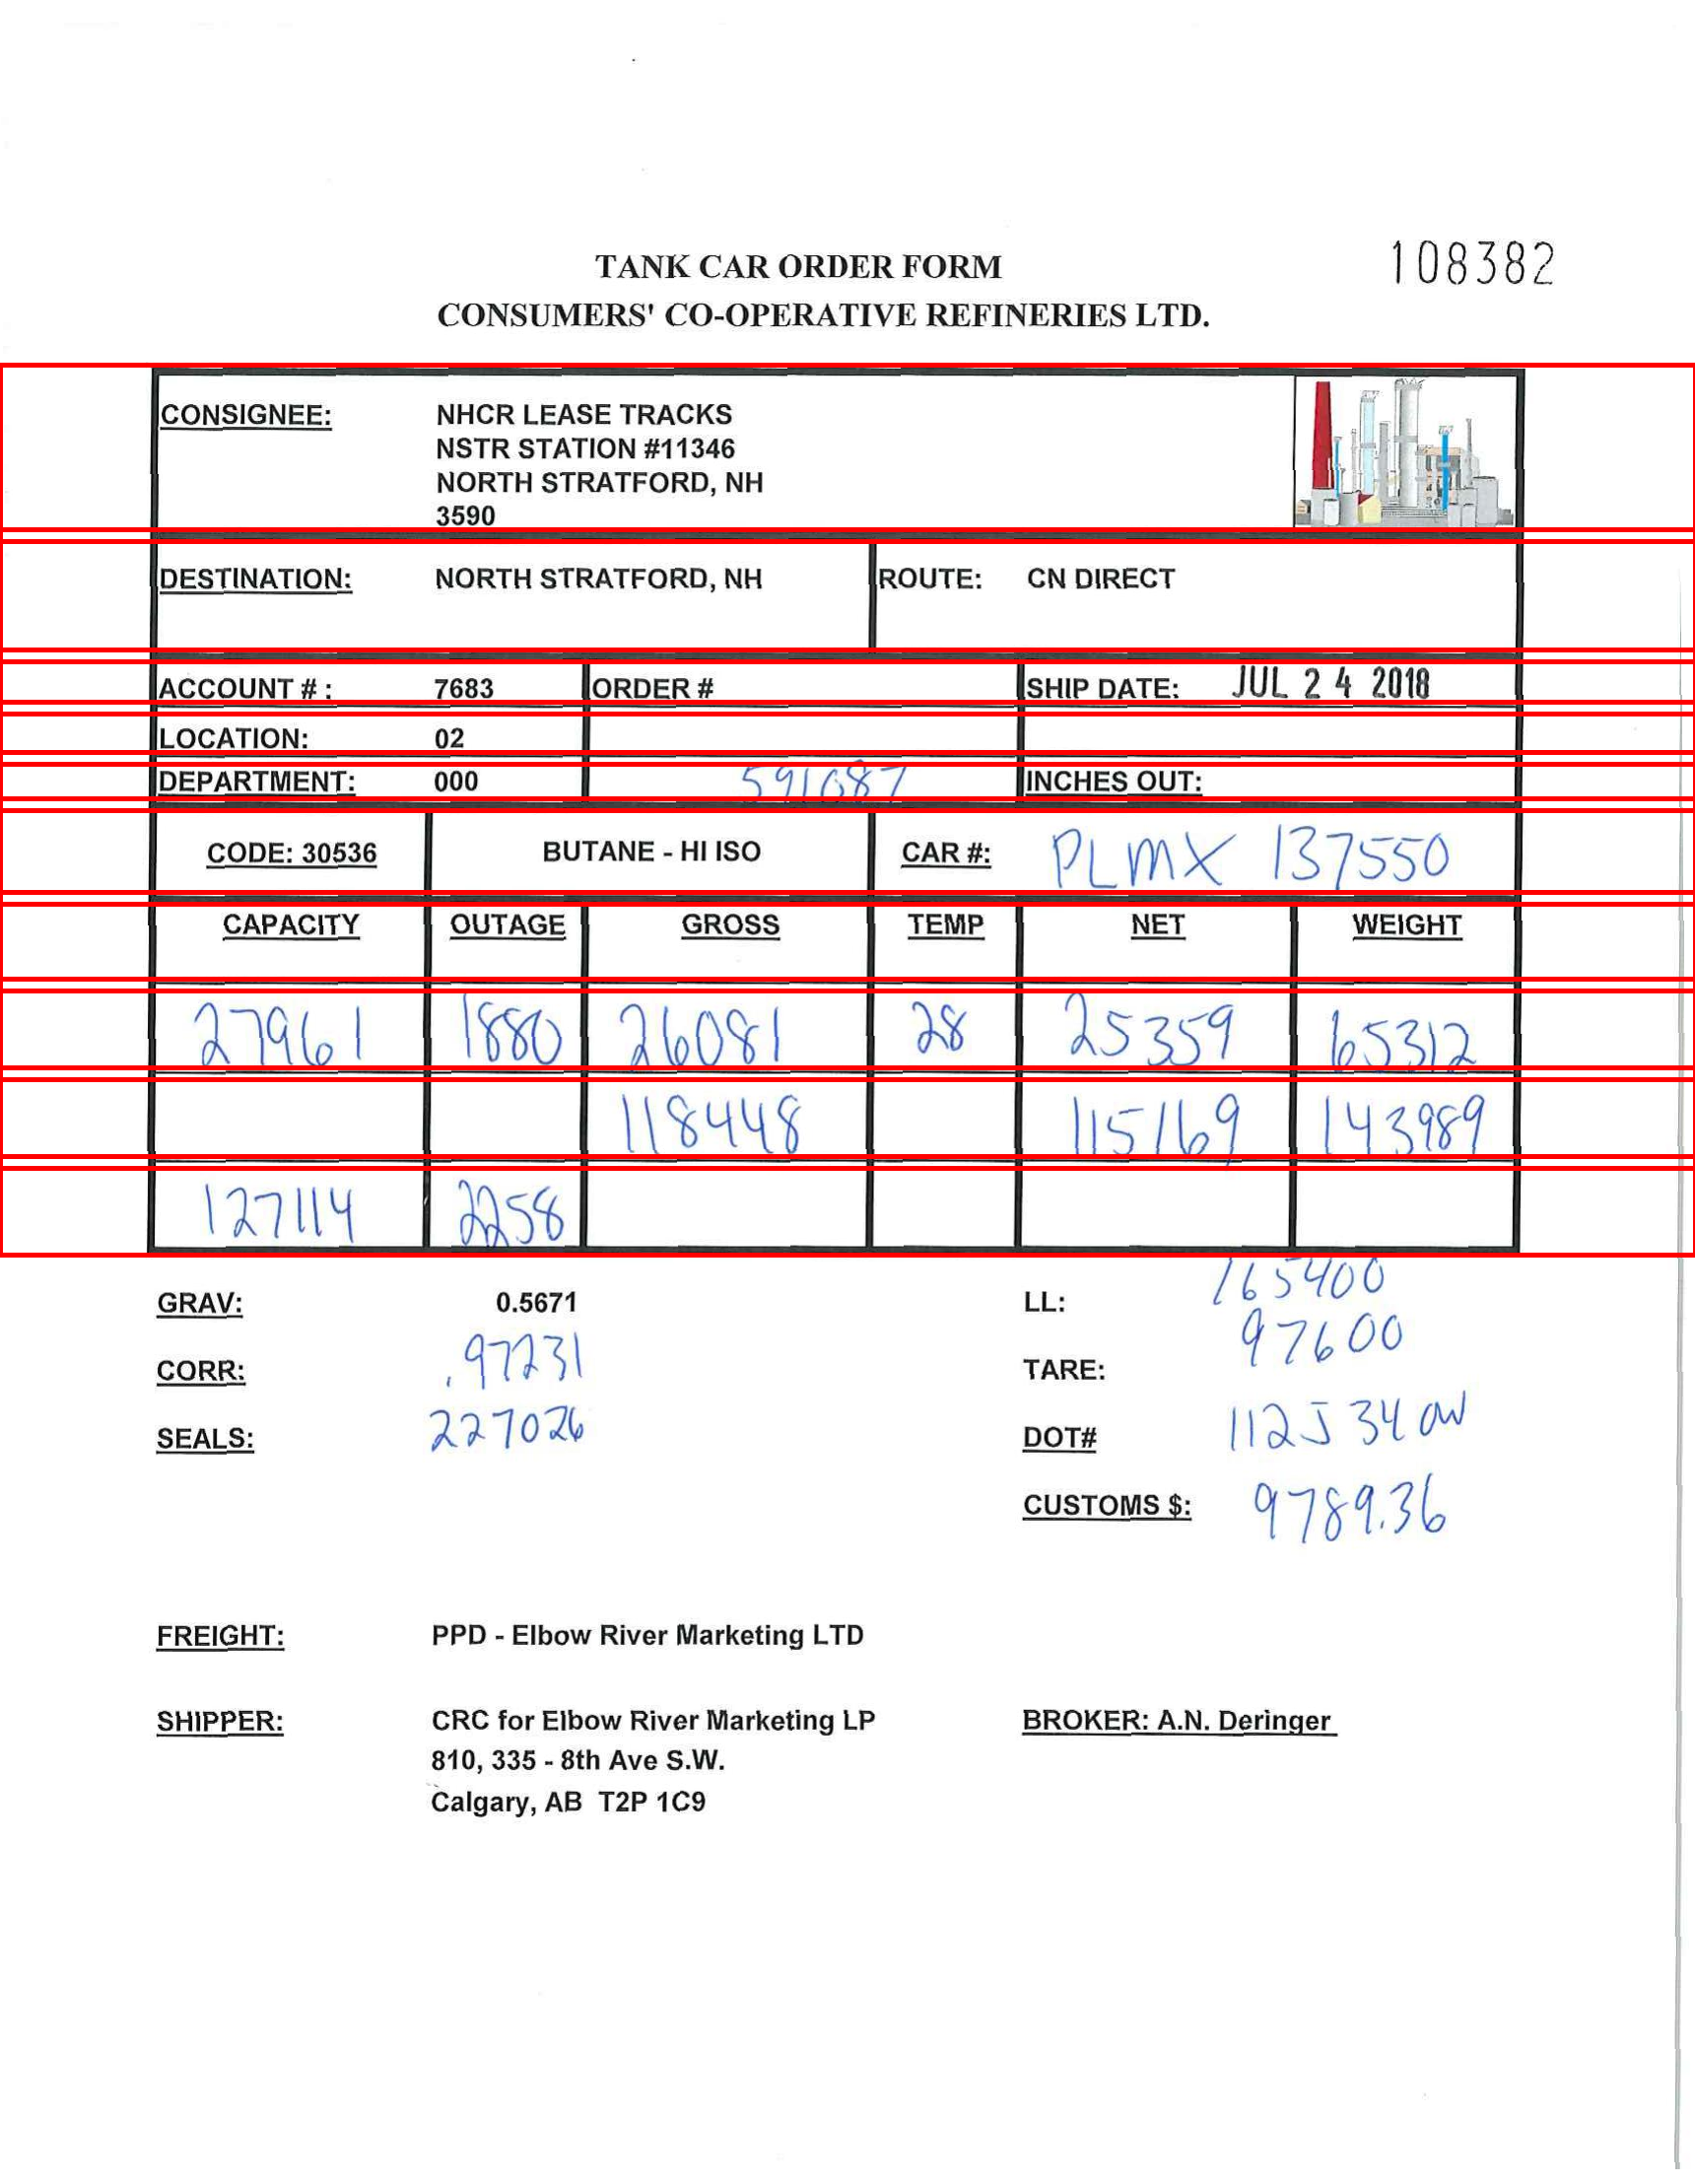 108382
TANK CAR ORDER FORM
CONSUMERS' CO-OPERATIVE REFINERIES LTD.
CONSIGNEE: NHCR LEASE TRACKS
NSTR STATION #11346
NORTH STRATFORD, NH
3590
DESTINATION: NORTH STRATFORD, NH ROUTE: CN DIRECT
ACCOUNT # : 7683 ORDER # SHIP DATE: JUL 24 2018
LOCATION: 02
DEPARTMENT: 000 INCHES OUT:
CODE: 30536 BUTANE - HI ISO CAR #: PLMX 137550
CAPACITY OUTAGE GROSS TEMP NET WEIGHT
27961 1880 26081 28 25359 65312
118448 115169 143989
127114 2258
GRAV: 0.5671 LL: 165400
CORR: .97231 TARE: 97600
SEALS: 227026 DOT# 112J340W
CUSTOMS $: 9789.36
FREIGHT: PPD - Elbow River Marketing LTD
SHIPPER: CRC for Elbow River Marketing LP BROKER: A.N. Deringer
810, 335 - 8th Ave S.W.
Calgary, AB T2P 1C9